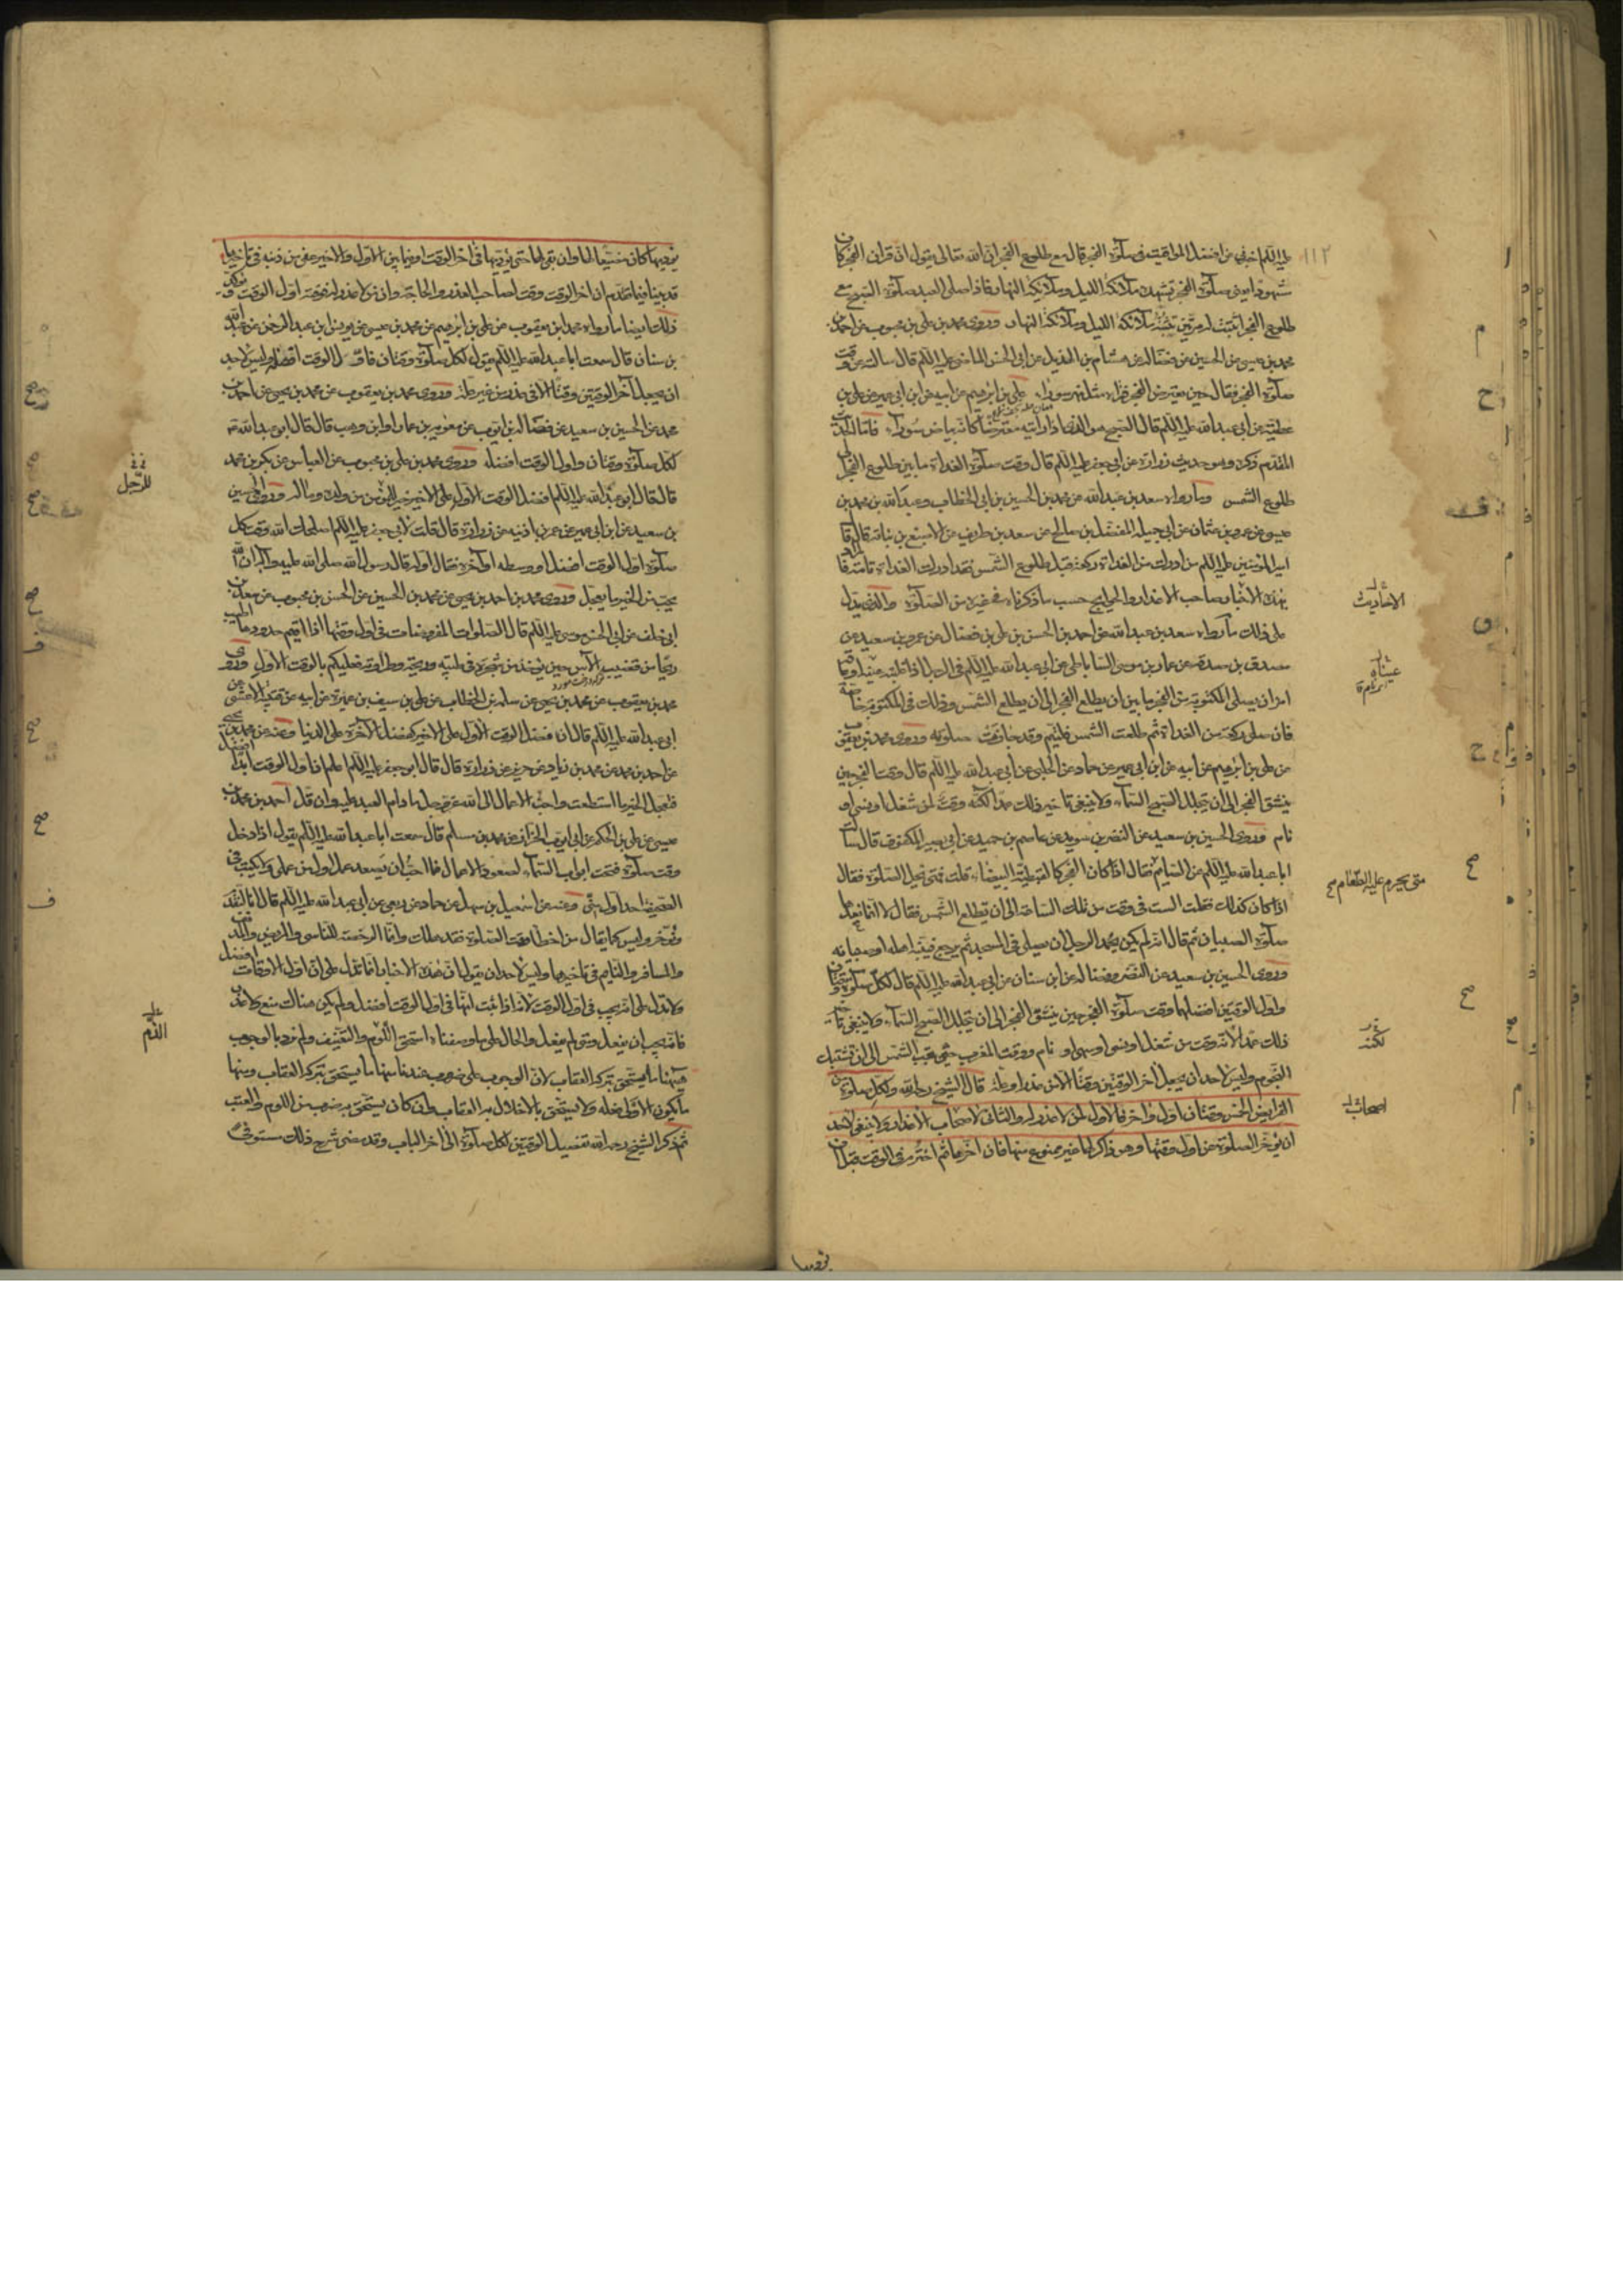 ١١٢
عليه السلم اخبرني عن افضل المواقيت في صلوة الفجر قال مع طلوع الفجر ان الله تعالى يقول ان قران الفجر كان
شهودا يعني صلوة الفجر تشهده ملائكة الليل وملائكة النهار فاذا صلى العبد صلوة الصبح مع
طلوع الفجر اثبتت له مرتين تثبته ملائكة الليل وملائكة النهار وروى محمد بن علي بن محبوب عن احمد بن
محمد بن عيسى عن الحسين عن فضالة عن هشام بن الهذيل عن ابي الحسن الماضي عليه السلم قال سالته عن وقت
صلوة الفجر فقال حين يعترض الفجر فتراه مثل نهر سوراء علي بن ابرهيم عن ابيه عن ابن ابي عمير عن علي بن
عطية عن ابي عبد الله عليه السلم قال الصبح هو الذي اذا رايته معترضا كانه بياض سوراء فاما الحديث
المتقدم ذكره وهو حديث زرارة عن ابي جعفر عليه السلم قال وقت صلوة الغداة ما بين طلوع الفجر الى
طلوع الشمس وما رواه سعد بن عبد الله عن محمد بن الحسين بن ابي الخطاب وعبد الله بن محمد بن
عيسى عن عمرو بن عثمان عن ابي جميلة المفضل بن صالح عن سعد بن طريف عن الاصبغ بن نباتة قال قال
امير المؤمنين عليه السلم من ادرك من الغداة ركعة قبل طلوع الشمس فقد ادرك الغداة تامة فالمراد
بهذه الاخبار صاحب الاعذار والحوايج حسب ما ذكرناه في غيره من الصلوة والذي يدل
على ذلك ما رواه سعد بن عبد الله عن احمد بن الحسن بن علي بن فضال عن عمرو بن سعيد عن
مصدق بن صدقة عن عمار بن موسى الساباطي عن ابي عبد الله عليه السلم في الرجل اذا غلبته عينه او عاقه
امر ان يصلي المكتوبة من الفجر ما بين ان يطلع الفجر الى ان يطلع الشمس وذلك في المكتوبة خاصة
فان صلى ركعة من الغداة ثم طلعت الشمس فليتم وقد جازت صلوته وروى محمد بن يعقوب
عن علي بن ابرهيم عن ابيه عن ابن ابي عمير عن حماد عن الحلبي عن ابي عبد الله عليه السلم قال وقت الفجر حين
ينشق الفجر الى ان يتجلل الصبح السماء ولا ينبغي تاخير ذلك عمدا لكنه وقت لمن شغل او نسي او
نام وروى الحسين بن سعيد عن النضر بن سويد عن عاصم بن حميد عن ابي بصير المكفوف قال سالت
ابا عبد الله عليه السلم عن الصايم فقال اذا كان الفجر كالقبطية البيضاء قلت فمتى تحل الصلوة فقال
اذا كان كذلك فقلت الست في وقت من تلك الساعة الى ان تطلع الشمس فقال لا انما نعدها
صلوة الصبيان ثم قال انه لم يكن يحمد الرجل ان يصلي في المسجد ثم يرجع فينبه اهله وصبيانه
وروى الحسين بن سعيد عن النضر وفضالة عن ابن سنان عن ابي عبد الله عليه السلم قال لكل صلوة وقتان
واول الوقتين افضلهما وقت صلوة الفجر حين ينشق الفجر الى ان يتجلل الصبح السماء ولا ينبغي تاخير
ذلك عمدا لانه وقت من شغل او نسي او سهى او نام ووقت المغرب حين تجب الشمس الى ان تشتبك
النجوم وليس لاحد ان يجعل اخر الوقتين وقتا الا من عذر او علة قال الشيخ رحمه الله ولكل صلوة من
الفرايض الخمس وقتان اول واخر فالاول لمن لا عذر له والثاني لاصحاب الاعذار ولا ينبغي لاحد
ان يؤخر الصلوة عن اول وقتها وهو ذاكر لها غير ممنوع منها فان اخرها ثم اخترم في الوقت قبل ان
الاحاديث
عيناه
متى يحرم عليه الطعام صح
لكنه
اصحاب
يؤديها كان مضيعا لها وان بقي لها حتى يؤديها في اخر الوقت او فيما بين الاول والاخير عفي عن ذنبه في تاخيرها
قد بينا فيما تقدم ان اخر الوقت وقت لصاحب العذر والحاجة وان من لا عذر له فوقته اول الوقت ويؤكد
ذلك ايضا ما رواه محمد بن يعقوب عن علي بن ابرهيم عن محمد بن عيسى عن يونس بن عبد الرحمن عن عبد الله
بن سنان قال سمعت ابا عبد الله عليه السلم يقول لكل صلوة وقتان فاول الوقت افضله وليس لاحد
ان يجعل آخر الوقتين وقتا الا في عذر من غير علة وروى محمد بن يعقوب عن محمد بن يحيى عن احمد بن
محمد عن الحسين بن سعيد عن فضالة بن ايوب عن معوية بن عمار او ابن وهب قال قال ابو عبد الله ع
لكل صلوة وقتان واول الوقت افضله وروى محمد بن علي بن محبوب عن العباس عن بكر بن محمد
قال قال ابو عبد الله عليه السلم لفضل الوقت الاول على الاخير خير للمؤمن من ولده وماله وروى الحسين
بن سعيد عن ابن ابي عمير عن عمر بن اذينه عن زرارة قال قلت لابي جعفر عليه السلم اصلحك الله وقت كل
صلوة اول الوقت افضل او وسطه او آخره فقال اوله قال رسول الله صلى الله عليه وآله ان الله
يحب من الخير ما يعجل وروى محمد بن احمد بن يحيى عن محمد بن الحسين عن الحسن بن محبوب عن سعد بن
ابي خلف عن ابي الحسن موسى عليه السلم قال الصلوات المفروضات في اول وقتها اذا اقيم حدودها اطيب
ريحا من قضيب الآس حين يؤخذ من شجره في طيبه وريحه وطراوته فعليكم بالوقت الاول وروى
محمد بن يعقوب عن محمد بن يحيى عن سلمة بن الخطاب عن علي بن سيف بن عميرة عن ابيه عن قتيبة الاعشى عن
ابي عبد الله عليه السلم قال ان فضل الوقت الاول على الاخير كفضل الآخرة على الدنيا وعنه عن محمد بن يحيى
عن احمد بن محمد عن محمد بن زياد عن حريز عن زرارة قال قال ابو جعفر عليه السلم اعلم ان اول الوقت ابدا افضل
فعجل الخير ما استطعت واحب الاعمال الى الله عز وجل ما دام العبد عليه وان قل احمد بن محمد بن
عيسى عن علي بن الحكم عن ابي ايوب الخزاز عن محمد بن مسلم قال سمعت ابا عبد الله عليه السلم يقول اذا دخل
وقت صلوة فتحت ابواب السماء لصعود الاعمال فما احب ان يصعد عمل اول من عملي ولا يكتب في
الصحيفة احد اول مني وعنه عن اسمعيل بن سهل عن حماد عن ربعي عن ابي عبد الله عليه السلم قال انا لنقدم
ونؤخر وليس كما يقال من اخطا وقت الصلوة فقد هلك وانما الرخصة للناسي والمريض والمدنف
والمسافر والنايم في تاخيرها وليس لاحد ان يقول ان هذه الاخبار انما تدل على ان اول الاوقات افضل
ولا تدل على انه يجب في اول الوقت لانه اذا ثبت انها في اول الوقت افضل ولم يكن هناك منع ولا عذر
فانه يجب ان يفعل ومتى لم يفعل والحال على ما وصفناه استحق اللوم والتعنيف ولم نرد بالوجوب
هيهنا ما يستحق بتركه العقاب لان الوجوب على ضروب عندنا منها ما يستحق بتركه العقاب ومنها
ما يكون الاولى فعله ولا يستحق بالاخلال به العقاب وان كان يستحق به ضرب من اللوم والعتب
ثم ذكر الشيخ رحمه الله تفصيل الوقتين لكل صلوة الى اخر الباب وقد مضى شرح ذلك مستوفى
للرجل
الذم